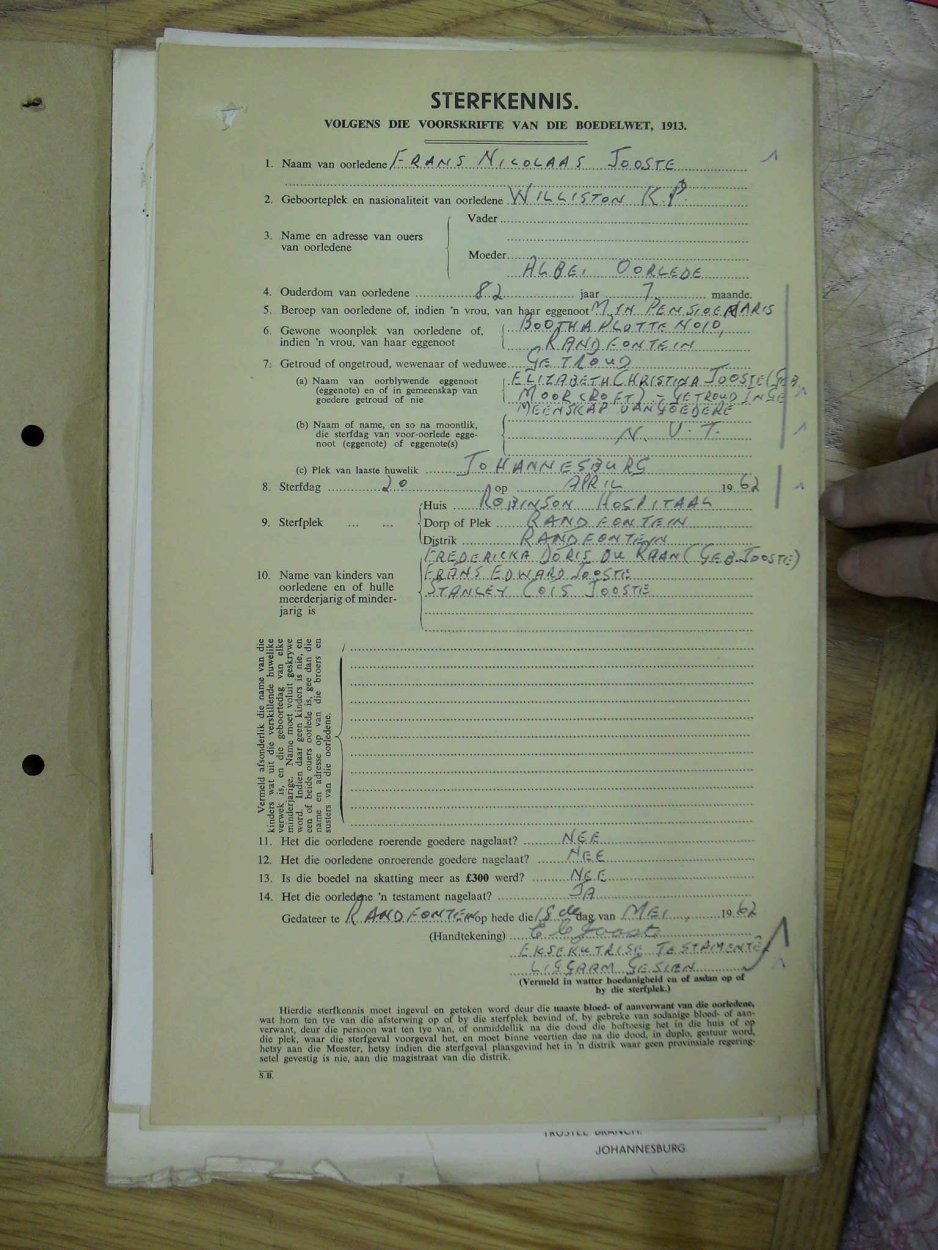 STERFKENNIS.
VOLGENS DIE VOORSKRIFTE VAN DIE BOEDELWET, 1913.
1. Naam van oorledene FRANS NICOLAAS JOOSTE
2. Geboorteplek en nasionaliteit van oorledene WILLISTON K.P.
Vader
3. Name en adresse van ouers
van oorledene
Moeder
ALBEI OORLEDE
4. Ouderdom van oorledene 82 jaar 7 maande.
5. Beroep van oorledene of, indien 'n vrou, van haar eggenoot MYN PENSIOENARIS
6. Gewone woonplek van oorledene of, BOOTHA PLOTTE NO 10,
indien 'n vrou, van haar eggenoot RANDFONTEIN
7. Getroud of ongetroud, wewenaar of weduwee GETROUD
(a) Naam van oorblywende eggenoot ELIZABETH CHRISTINA JOOSTE (GEB
(eggenote) en of in gemeenskap van MOORCROFT) - GETROUD IN GE
goedere getroud of nie MEENSKAP VAN GOEDERE
(b) Naam of name, en so na moontlik,
die sterfdag van voor-oorlede egge- N.V.T.
noot (eggenote) of eggenote(s)
(c) Plek van laaste huwelik JOHANNESBURG
8. Sterfdag 20 op APRIL 1962
Huis ROBINSON HOSPITAAL
9. Sterfplek ... ... Dorp of Plek RANDFONTEIN
Distrik RANDFONTEIN
FREDERICKA DORIS DU RAAN (GEB. JOOSTE)
10. Name van kinders van FRANS EDWARD JOOSTE
oorledene en of hulle STANLEY COIS JOOSTE
meerderjarig of minder-
jarig is
Vermeld afsonderlik die name van die
kinders wat uit die verskillende huwelike
verwek is, en die geboortedag van elke
minderjarige. Name moet voluit geskrywe
word. Indien daar geen kinders is nie, en
een of beide ouers oorlede is, gee dan die
name en adresse op van die broers en
susters van die oorledene.
11. Het die oorledene roerende goedere nagelaat? NEE
12. Het die oorledene onroerende goedere nagelaat? NEE
13. Is die boedel na skatting meer as £300 werd? NEE
14. Het die oorledene 'n testament nagelaat? JA
Gedateer te RANDFONTEIN op hede die 18de dag van MEI 1962
(Handtekening) E C Jooste
EKSEKUTRISE TESTAMENTÊR
LIGGAAM GESIEN
(Vermeld in watter hoedanigheid en of asdan op of
by die sterfplek.)
Hierdie sterfkennis moet ingevul en geteken word deur die naaste bloed- of aanverwant van die oorledene,
wat hom ten tye van die afsterwing op of by die sterfplek bevind of, by gebreke van sodanige bloed- of aan-
verwant, deur die persoon wat ten tye van, of onmiddellik na die dood die hoftoesig het in die huis of op
die plek, waar die sterfgeval voorgeval het, en moet binne veertien dae na die dood, in duplo, gestuur word,
hetsy aan die Meester, hetsy indien die sterfgeval plaasgevind het in 'n distrik waar geen provinsiale regering-
setel gevestig is nie, aan die magistraat van die distrik.
S.B.
TRUSTEE BRANCH.
JOHANNESBURG